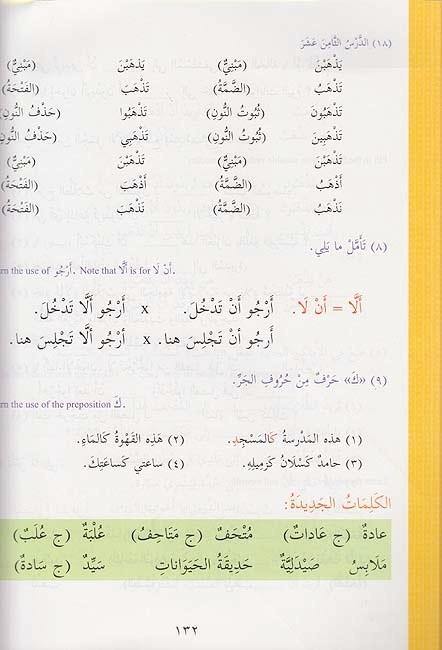 (١٨) الدَّرْسُ الثَّامِنَ عَشَرَ
يَذْهَبْنَ (مَبْنِيٌّ) يَذْهَبْنَ (مَبْنِيٌّ)
تَذْهَبُ (الضَّمَّةُ) تَذْهَبَ (الفَتْحَةُ)
تَذْهَبُونَ (ثُبُوتُ النُّونِ) تَذْهَبُوا (حَذْفُ النُّونِ)
تَذْهَبِينَ (ثُبُوتُ النُّونِ) تَذْهَبِي (حَذْفُ النُّونِ)
تَذْهَبْنَ (مَبْنِيٌّ) تَذْهَبْنَ (مَبْنِيٌّ)
أَذْهَبُ (الضَّمَّةُ) أَذْهَبَ (الفَتْحَةُ)
نَذْهَبُ (الضَّمَّةُ) نَذْهَبَ (الفَتْحَةُ)
(٨) تَأَمَّلْ ما يَلِي.
the use of أَرْجُو. Note that أَلَّا is for أَنْ لَا.
أَلَّا = أَنْ لَا. أَرْجُو أَنْ تَدْخُلَ. x أَرْجُو أَلَّا تَدْخُلَ.
أَرجُو أنْ تَجْلِسَ هنا. x أرْجُو ألَّا تَجْلِسَ هنا.
(٩) «كَ» حَرْفٌ مِنْ حُرُوفِ الجَرِّ.
the use of the preposition كَ.
(١) هذه المَدْرسةُ كَالمَسْجِدِ. (٢) هَذِهِ القَهْوَةُ كَالمَاءِ.
(٣) حامدٌ كَسْلَانُ كَزَمِيلِهِ. (٤) ساعتي كَسَاعَتِكَ.
الكَلِمَاتُ الجَدِيدَةُ:
عادةٌ (ج عَادَاتٌ) مُتْحَفٌ (ج مَتَاحِفُ) عُلْبَةٌ (ج عُلَبٌ)
مَلَابِسُ صَيْدَلِيَّةٌ حَدِيقَةُ الحَيَوَانَاتِ سَيِّدٌ (ج سَادَةٌ)
١٣٢